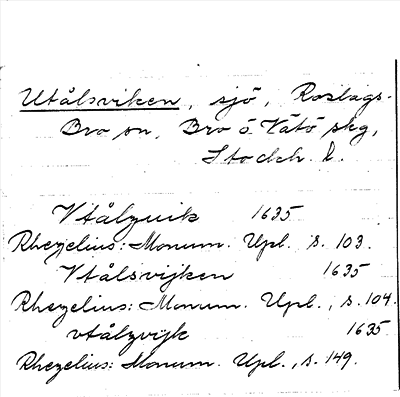 Utålsviken, sjö, Roslags-
Bro sn, Bro o. Vätö skg,
Stockh. l.
Vtålzuik 1635
Rhezelius: Monum. Upl. s. 103.
Vtålsvijken 1635
Rhezelius: Monum. Upl., s. 104.
vtålzvijk 1635
Rhezelius: Monum. Upl., s. 149.